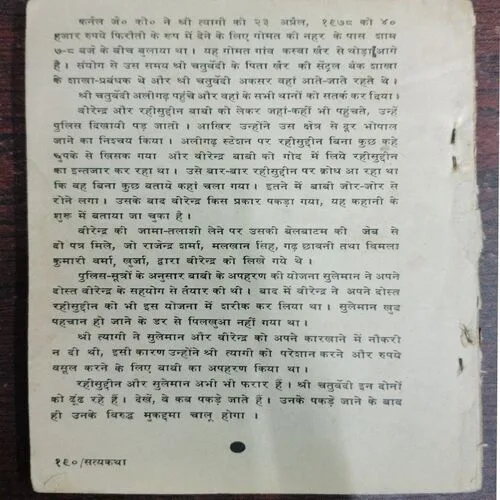 कर्नल जे० को० ने श्री त्यागी को २३ अप्रैल, १९७८ को ४०
हजार रुपये फिरौती के रूप में देने के लिए गोमत की नहर के पास शाम
७-८ बजे के बीच बुलाया था। यह गोमत गांव कस्बा खैर से थोड़ा आगे
है। संयोग से उस समय श्री चतुर्वेदी के पिता खैर की सेंट्रल बैंक शाखा
के शाखा-प्रबंधक थे और श्री चतुर्वेदी अकसर वहां आते-जाते रहते थे।
श्री चतुर्वेदी अलीगढ़ पहुंचे और वहां के सभी थानों को सतर्क कर दिया।
बीरेन्द्र और रहीसुद्दीन बाबी को लेकर जहां-कहीं भी पहुंचते, उन्हें
पुलिस दिखायी पड़ जाती। आखिर उन्होंने उस क्षेत्र से दूर भोपाल
जाने का निश्चय किया। अलीगढ़ स्टेशन पर रहीसुद्दीन बिना कुछ कहे
चुपके से खिसक गया और बीरेन्द्र बाबी को गोद में लिये रहीसुद्दीन
का इन्तजार कर रहा था। उसे बार-बार रहीसुद्दीन पर क्रोध आ रहा था
कि वह बिना कुछ बताये कहां चला गया। इतने में बाबी जोर-जोर से
रोने लगा। उसके बाद बीरेन्द्र किस प्रकार पकड़ा गया, यह कहानी के
शुरू में बताया जा चुका है।
बीरेन्द्र की जामा-तलाशी लेने पर उसकी बेलबाटम की जेब से
दो पत्र मिले, जो राजेन्द्र शर्मा, मलखान सिंह, गढ़ छावनी तथा विमला
कुमारी वर्मा, खुर्जा, द्वारा बीरेन्द्र को लिखे गये थे।
पुलिस-सूत्रों के अनुसार बाबी के अपहरण की योजना सुलेमान ने अपने
दोस्त बीरेन्द्र के सहयोग से तैयार की थी। बाद में बीरेन्द्र ने अपने दोस्त
रहीसुद्दीन को भी इस योजना में शरीक कर लिया था। सुलेमान खुद
पहचान हो जाने के डर से पिलखुआ नहीं गया था।
श्री त्यागी ने सुलेमान और बीरेन्द्र को अपने कारखाने में नौकरी
न दी थी, इसी कारण उन्होंने श्री त्यागी को परेशान करने और रुपये
वसूल करने के लिए बाबी का अपहरण किया था।
रहीसुद्दीन और सुलेमान अभी भी फरार हैं। श्री चतुर्वेदी इन दोनों
को ढूंढ रहे हैं। देखें, वे कब पकड़े जाते हैं। उनके पकड़े जाने के बाद
ही उनके विरुद्ध मुकद्दमा चालू होगा।
१९०/सत्यकथा